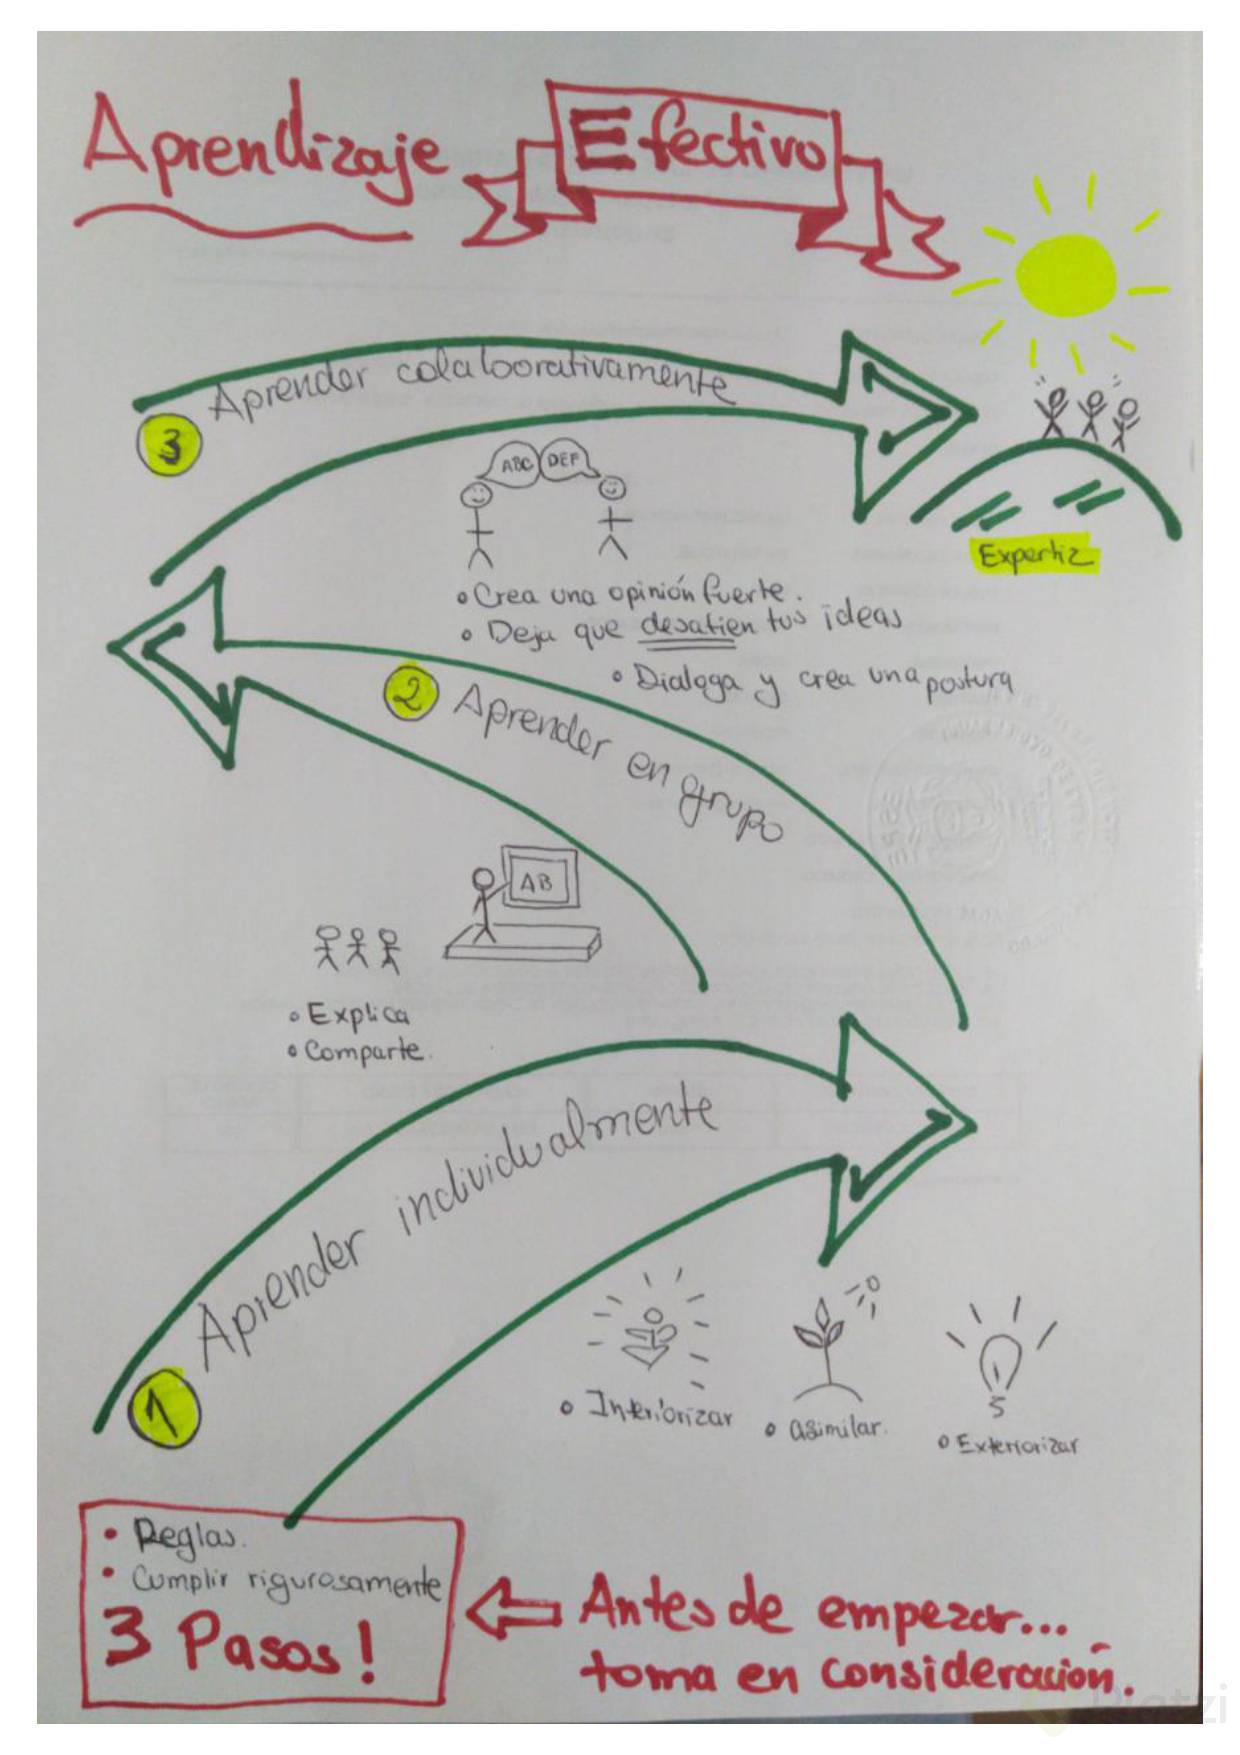 Aprendizaje Efectivo
3 Aprender colaborativamente
ABC DEF
Expertiz
• Crea una opinión fuerte.
• Deja que desafien tus ideas
• Dialoga y crea una postura
2 Aprender en grupo
AB
• Explica
• Comparte.
1 Aprender individualmente
• Interiorizar
• Asimilar.
• Exteriorizar
• Reglas.
• Cumplir rigurosamente
3 Pasos!
Antes de empezar...
toma en consideración.